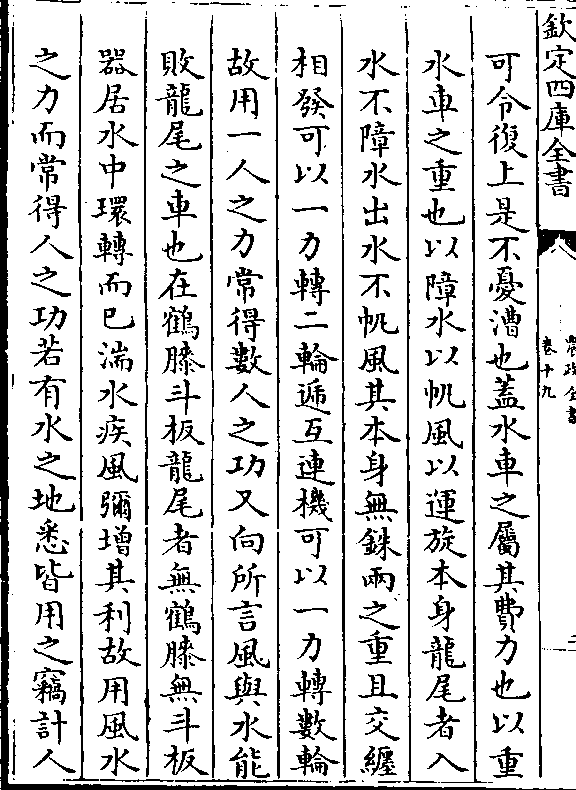 欽定四庫全書
農政全書
卷十九
二
可令復上是不憂漕也蓋水車之屬其費力也以重
水車之重也以障水以帆風以運旋本身龍尾者入
水不障水出水不帆風其本身無銖兩之重且交纏
相發可以一力轉二輪遞互連機可以一力轉數輪
故用一人之力常得數人之功又向所言風與水能
敗龍尾之車也在鶴膝斗板龍尾者無鶴膝無斗板
器居水中環轉而已湍水疾風彌增其利故用風水
之力而常得人之功若有水之地悉皆用之竊計人